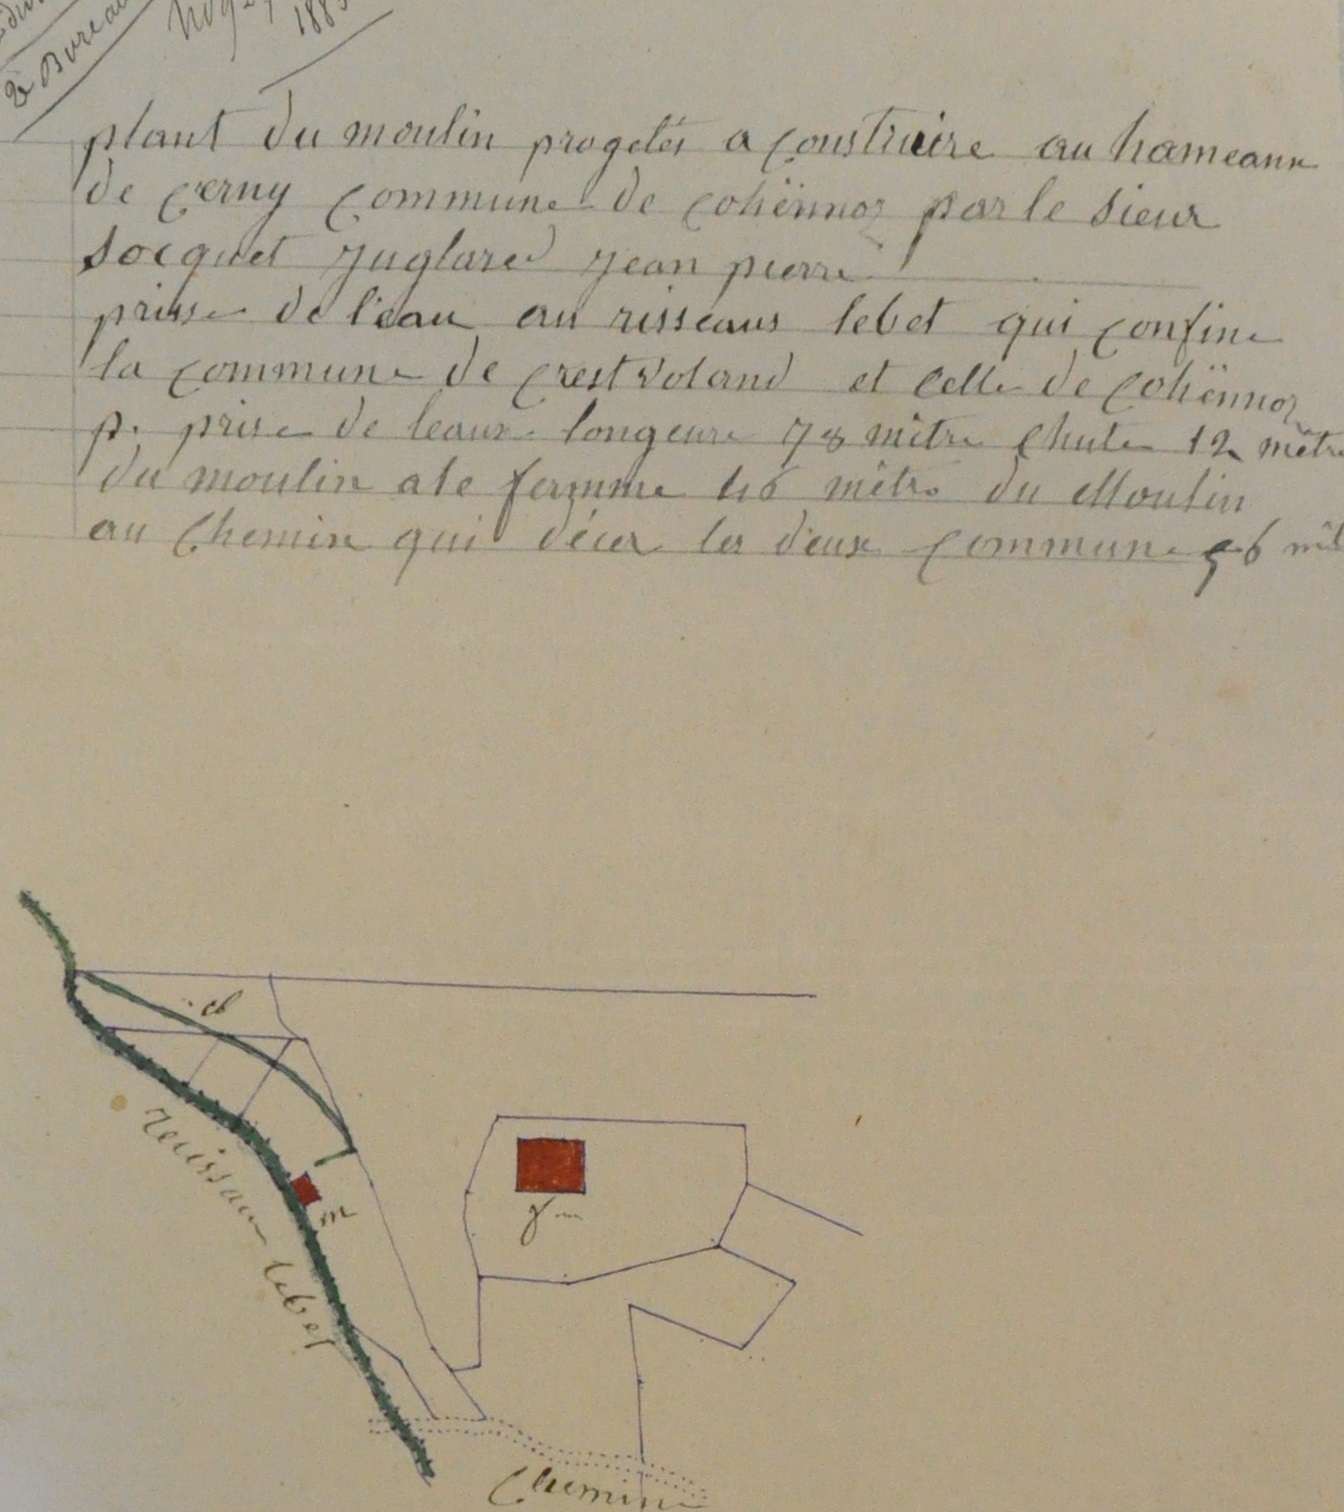 2e Bureau
plant du moulin progetés a construire au hameaux
de cerny commune de cohënnoz par le sieur
socquet juglard jean pierre
prisse de l'eau au risseaus lebet qui confine
la commune de crestvoland et celle de cohënnoz
p. prise de leaux longeure 78 mètre chute 12 mètre
du moulin ale ferme 46 mètre du Moulin
au chemin qui décer les deux commune 56
d
reuisseau lebet
m
f
chemin